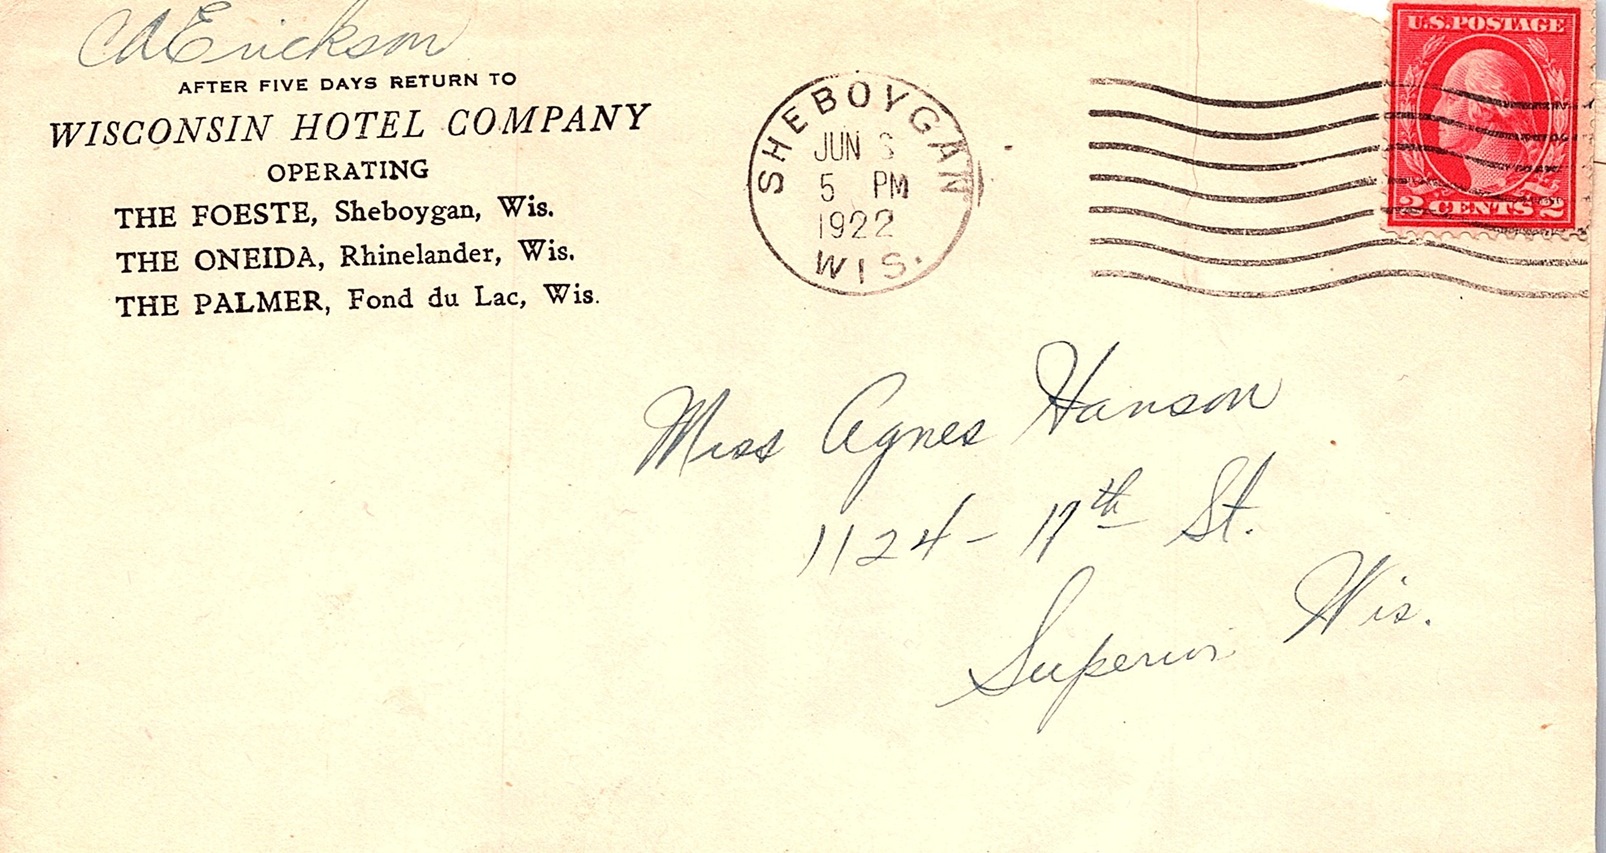 CAErickson
AFTER FIVE DAYS RETURN TO
WISCONSIN HOTEL COMPANY
OPERATING
THE FOESTE, Sheboygan, Wis.
THE ONEIDA, Rhinelander, Wis.
THE PALMER, Fond du Lac, Wis.
SHEBOYGAN
JUN
5 PM
1922
WIS.
U.S. POSTAGE
2 CENTS 2
Miss Agnes Hanson
1124 - 17th St.
Superior Wis.